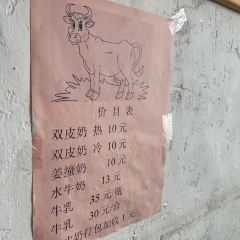 价目表
双皮奶 热 10元
双皮奶 冷 10元
姜撞奶 10元
水牛奶 13元
牛乳 35元/瓶
牛乳 30元/合
皮奶打包加收1元